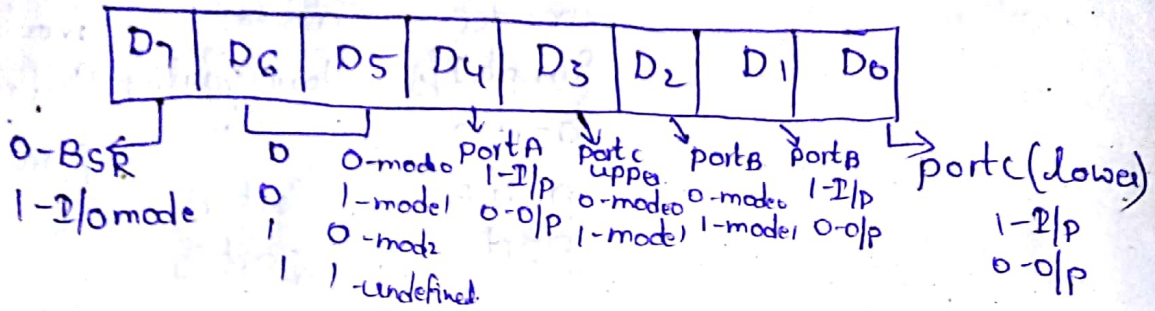 D7 D6 D5 D4 D3 D2 D1 D0
0-BSR
1-I/O mode
0 0-mod0
0 1-mode1
1 0-mod2
1 1-undefined.
Port A
1-I/P
0-O/P
Port C
upper
0-mode0
1-mode1
Port B
0-mode0
1-mode1
Port B
1-I/P
0-O/P
Port C (lower)
1-I/P
0-O/P